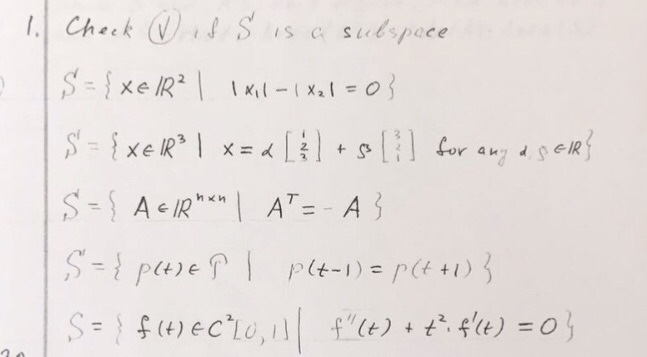 1. Check √ if S is a subspace
S = { x ∈ ℝ² | |x₁| - |x₂| = 0 }
S = { x ∈ ℝ³ | x = α [1 2 3] + β [3 2 1] for any α, β ∈ ℝ }
S = { A ∈ ℝⁿˣⁿ | Aᵀ = - A }
S = { p(t) ∈ ℙ | p(t-1) = p(t+1) }
S = { f(t) ∈ C²[0,1] | f''(t) + t². f'(t) = 0 }